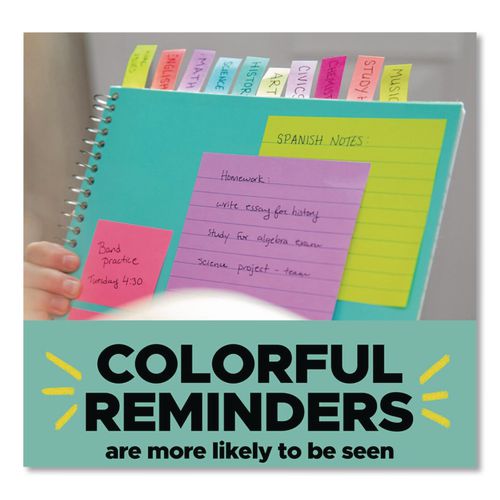 ENGLISH
MATH
SCIENCE
HISTORY
ART
CIVICS
STUDY
MUSIC
SPANISH NOTES:
Homework:
write essay for history
study for algebra exam
science project - team
Band
practice
Tuesday 4:30
COLORFUL
REMINDERS
are more likely to be seen